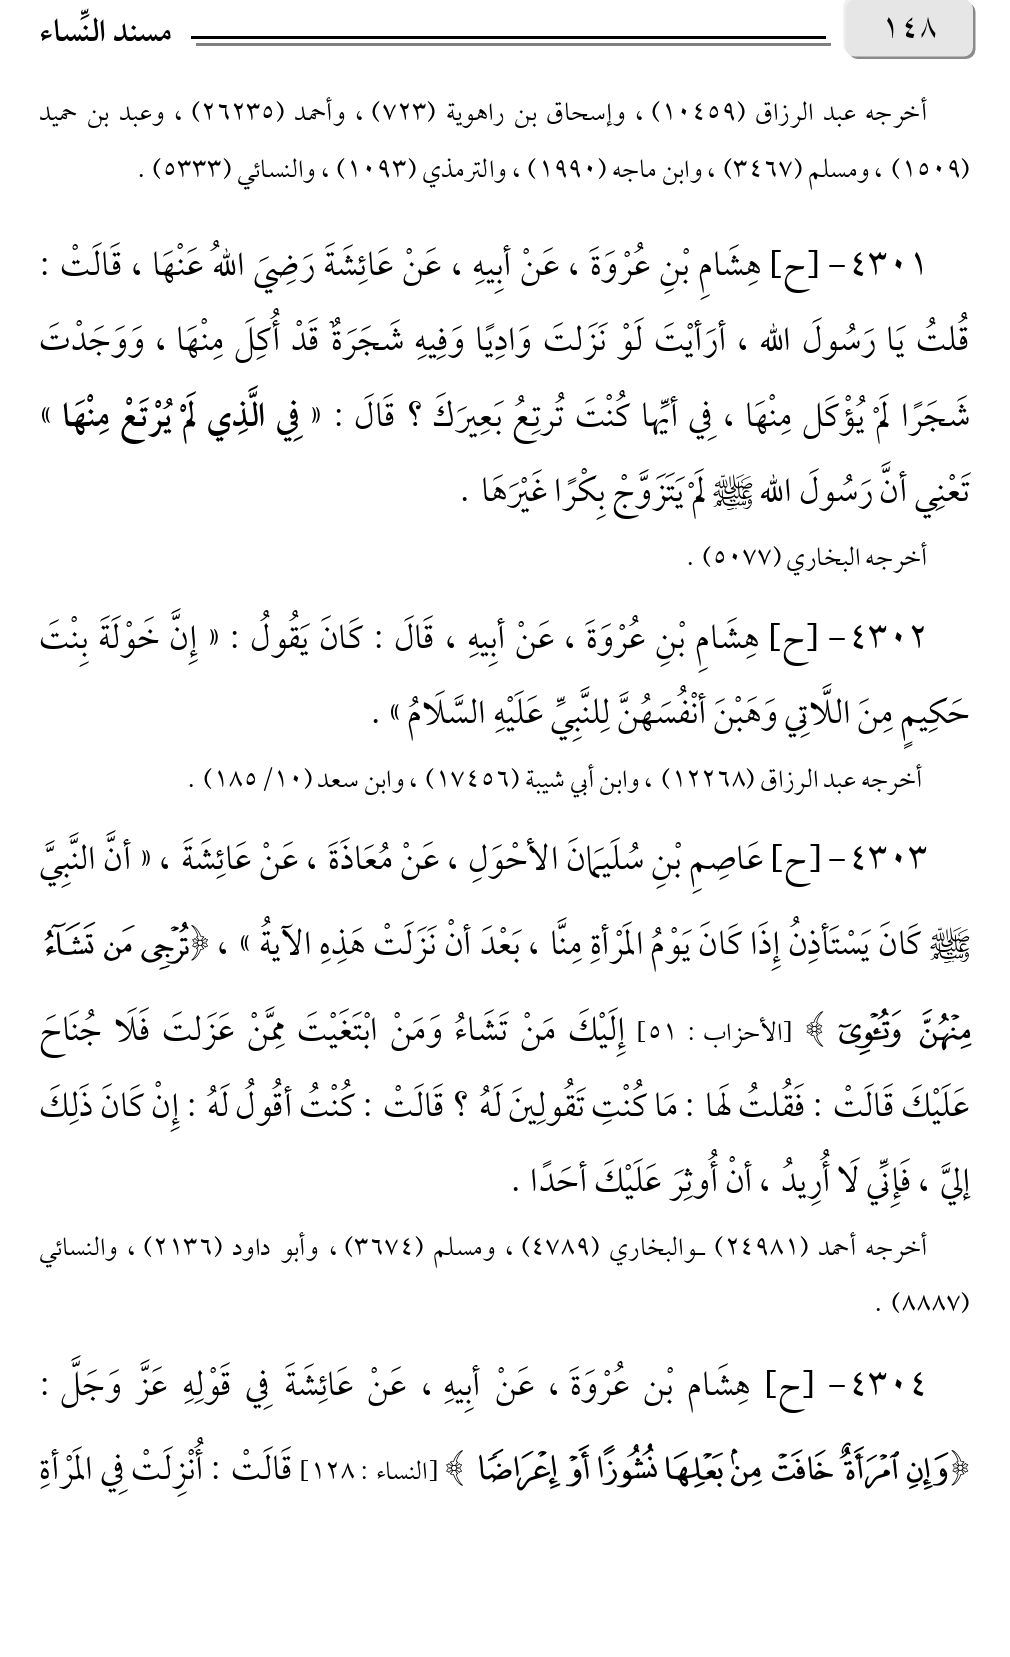 ١٤٨ مسند النِّساء
أخرجه عبد الرزاق (١٠٤٥٩) ، وإسحاق بن راهوية (٧٢٣) ، وأحمد (٢٦٢٣٥) ، وعبد بن حميد
(١٥٠٩) ، ومسلم (٣٤٦٧) ، وابن ماجه (١٩٩٠) ، والترمذي (١٠٩٣) ، والنسائي (٥٣٣٣) .
٤٣٠١- [ح] هِشَامِ بْنِ عُرْوَةَ ، عَنْ أبِيهِ ، عَنْ عَائِشَةَ رَضِيَ اللهُ عَنْهَا ، قَالَتْ :
قُلتُ يَا رَسُولَ الله ، أرَأيْتَ لَوْ نَزَلتَ وَادِيًا وَفِيهِ شَجَرَةٌ قَدْ أُكِلَ مِنْهَا ، وَوَجَدْتَ
شَجَرًا لَمْ يُؤْكَل مِنْهَا ، فِي أيِّها كُنْتَ تُرتِعُ بَعِيرَكَ ؟ قَالَ : « فِي الَّذِي لَمْ يُرْتَعْ مِنْهَا »
تَعْنِي أنَّ رَسُولَ الله ﷺ لَمْ يَتَزَوَّجْ بِكْرًا غَيْرَهَا .
أخرجه البخاري (٥٠٧٧) .
٤٣٠٢- [ح] هِشَامِ بْنِ عُرْوَةَ ، عَنْ أبِيهِ ، قَالَ : كَانَ يَقُولُ : « إِنَّ خَوْلَةَ بِنْتَ
حَكِيمٍ مِنَ اللَّاتِي وَهَبْنَ أنْفُسَهُنَّ لِلنَّبِيِّ عَلَيْهِ السَّلَامُ » .
أخرجه عبد الرزاق (١٢٢٦٨) ، وابن أبي شيبة (١٧٤٥٦) ، وابن سعد (١٠/ ١٨٥) .
٤٣٠٣- [ح] عَاصِمِ بْنِ سُلَيَمَانَ الأحْوَلِ ، عَنْ مُعَاذَةَ ، عَنْ عَائِشَةَ ، « أنَّ النَّبِيَّ
ﷺ كَانَ يَسْتَأذِنُ إِذَا كَانَ يَوْمُ المَرْأةِ مِنَّا ، بَعْدَ أنْ نَزَلَتْ هَذِهِ الآيةُ » ، ﴿تُرْجِى مَن تَشَآءُ
مِنْهُنَّ وَتُـْٔوِىٓ ﴾ [الأحزاب : ٥١] إِلَيْكَ مَنْ تَشَاءُ وَمَنْ ابْتَغَيْتَ مِمَّنْ عَزَلتَ فَلَا جُنَاحَ
عَلَيْكَ قَالَتْ : فَقُلتُ لَها : مَا كُنْتِ تَقُولِينَ لَهُ ؟ قَالَتْ : كُنْتُ أقُولُ لَهُ : إِنْ كَانَ ذَلِكَ
إليَّ ، فَإِنِّي لَا أُرِيدُ ، أنْ أُوثِرَ عَلَيْكَ أحَدًا .
أخرجه أحمد (٢٤٩٨١) ـوالبخاري (٤٧٨٩) ، ومسلم (٣٦٧٤) ، وأبو داود (٢١٣٦) ، والنسائي
(٨٨٨٧) .
٤٣٠٤- [ح] هِشَام بْن عُرْوَةَ ، عَنْ أبِيهِ ، عَنْ عَائِشَةَ فِي قَوْلِهِ عَزَّ وَجَلَّ :
﴿وَإِنِ ٱمْرَأَةٌ خَافَتْ مِنۢ بَعْلِهَا نُشُوزًا أَوْ إِعْرَاضًا ﴾ [النساء : ١٢٨] قَالَتْ : أُنْزِلَتْ فِي المَرْأةِ